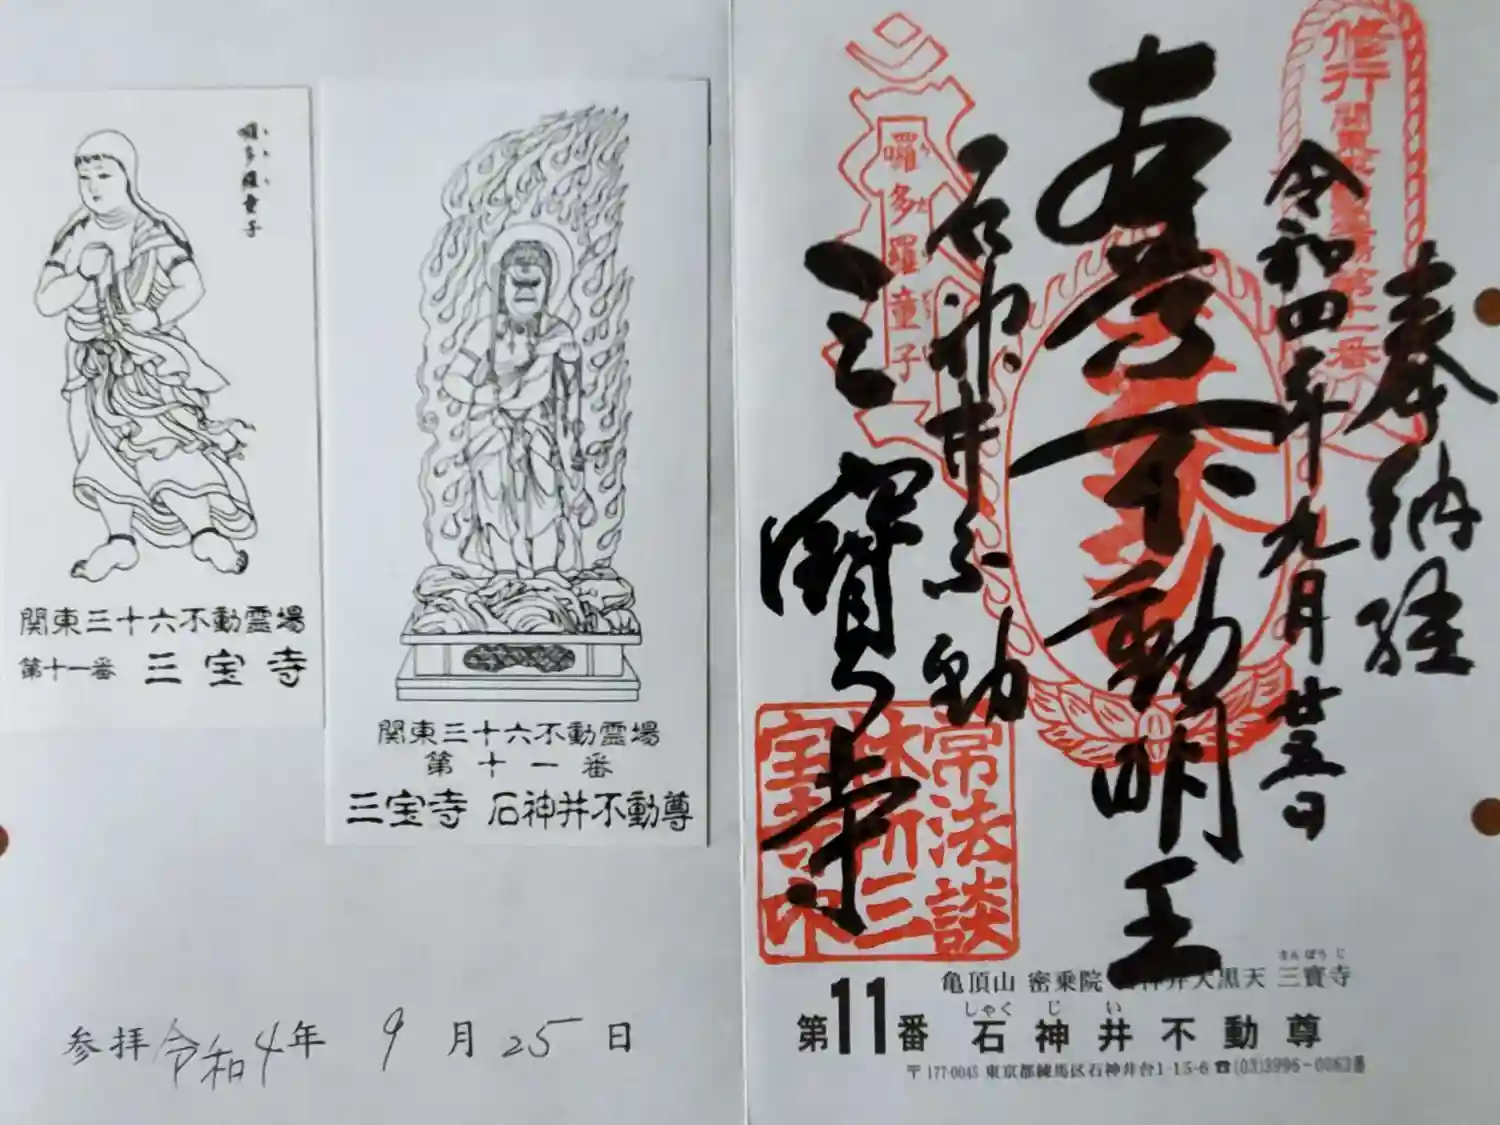 囉多羅童子
関東三十六不動霊場
第十一番 三宝寺
関東三十六不動霊場
第十一番
三宝寺 石神井不動尊
参拝 令和4年 9月25日
奉納経
令和四年九月廿五日
不動明王
石神井不動
三寶寺
修行
関東
第十一番
囉多羅童子
常法談
林所三
宝寺印
さんぽうじ
亀頂山 密乗院 大黒天 三寶寺
しゃくじい
第11番 石神井不動尊
〒177-0045 東京都練馬区石神井台1-15-6 ☎(03)3996-0063番